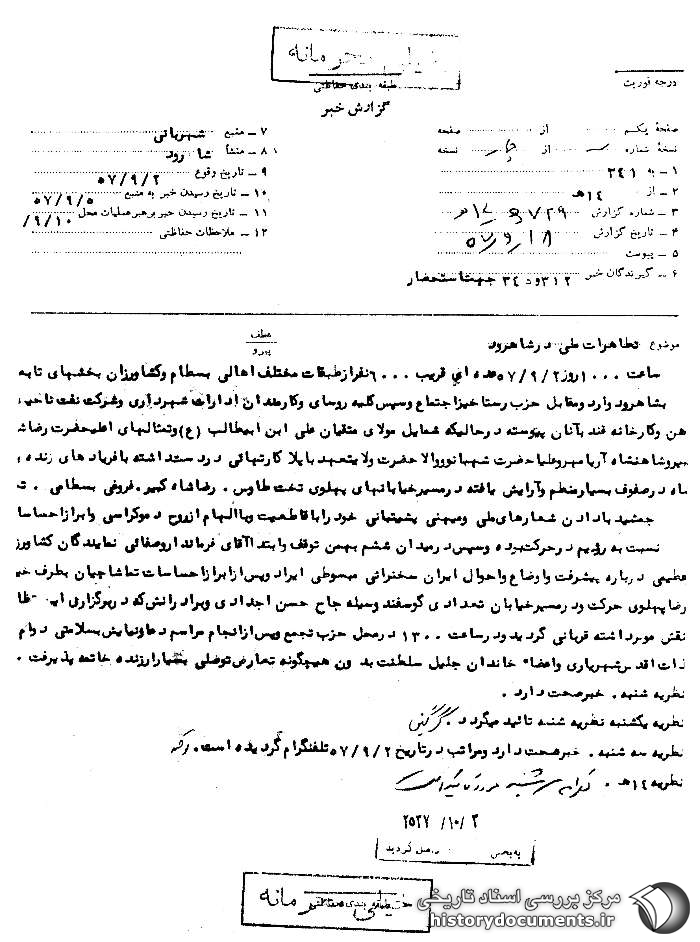 خیلی محرمانه
طبقه بندی حفاظتی
گزارش خبر
درجه فوریت
صفحه یکم از صفحه
نسخه شماره از چهار نسخه
۱ ـ به ۳۴۱
۲ ـ از ۱۴ه‍
۳ ـ شماره گزارش
۴ ـ تاریخ گزارش
۵ ـ پیوست
۶ ـ گیرندگان خبر ۳۱۲ و ۳۴۵ جهت استحضار
۷ ـ منبع شهربانی
۸ ـ منشأ شاهرود
۹ ـ تاریخ وقوع ۵۷/۹/۲
۱۰ ـ تاریخ رسیدن خبر به منبع ۵۷/۹/۵
۱۱ ـ تاریخ رسیدن خبر برهبر عملیات محل ۹/۱۰/
۱۲ ـ ملاحظات حفاظتی
عطف
پیرو
موضوع تظاهرات ملی در شاهرود
ساعت ۱۰۰۰ روز ۵۷/۹/۲ عده ای قریب ۶۰۰۰ نفر از طبقات مختلف اهالی بسطام و کشاورزان بخشهای تابعه
بشاهرود وارد و مقابل حزب رستاخیز اجتماع و سپس کلیه روسای و کارمندان ادارات شهرداری و شرکت نفت ناحیه
هن و کارخانه قند بآنان پیوسته در حالیکه شمایل مولای متقیان علی ابن ابیطالب (ع) و تمثالهای اعلیحضرت رضا
آریامهر و علیا حضرت شهبانو و والا حضرت ولایتعهد با پلاکارتهائی در دست داشته با فریادهای زنده
باد در صفوف بسیار منظم و آرایش یافته در مسیر خیابانهای پهلوی تخت طاوس . رضا شاه کبیر . فروغی بسطامی .
جمشید با دادن شعارهای ملی و میهنی پشتیبانی خود را با قاطعیت و با الهام از روح دموکراسی و ابراز احساسات
نسبت به رژیم در حرکت بوده و سپس در میدان ششم بهمن توقف و ابتدا آقای فرماندار و صفائی نمایندگان کشاورز
عظیمی درباره پیشرفت و اوضاع و احوال ایران سخنرانی مبسوطی ایراد و پس از ابراز احساسات تماشاچیان بطرف
رضا پهلوی حرکت و در مسیر خیابان تعدادی گوسفند وسیله حاج حسن اجدادی و برادرانش که در برگزاری این
نقش موثر داشته قربانی گردید و در ساعت ۱۳۰۰ در محل حزب تجمع و پس از انجام مراسم دعا و نیایش بسلامتی دوام
ذات اقدس شهریاری و اعضاء خاندان جلیل سلطنت بدون هیچگونه تعارض توصلی بسیار ارزنده خاتمه پذیرفت .
نظریه شنبه . خبر صحت دارد .
نظریه یکشنبه نظریه شنبه تائید میگردد .
نظریه سه شنبه . خبر صحت دارد و مراتب در تاریخ ۵۷/۹/۲ تلفنگرام گردیده است .
نظریه ۱۴ه‍ .
۲۵۳۷/۱۰/۲
به بخش واصل گردید
خیلی محرمانه
طبقه بندی حفاظتی
مرکز بررسی اسناد تاریخی
historydocuments.ir